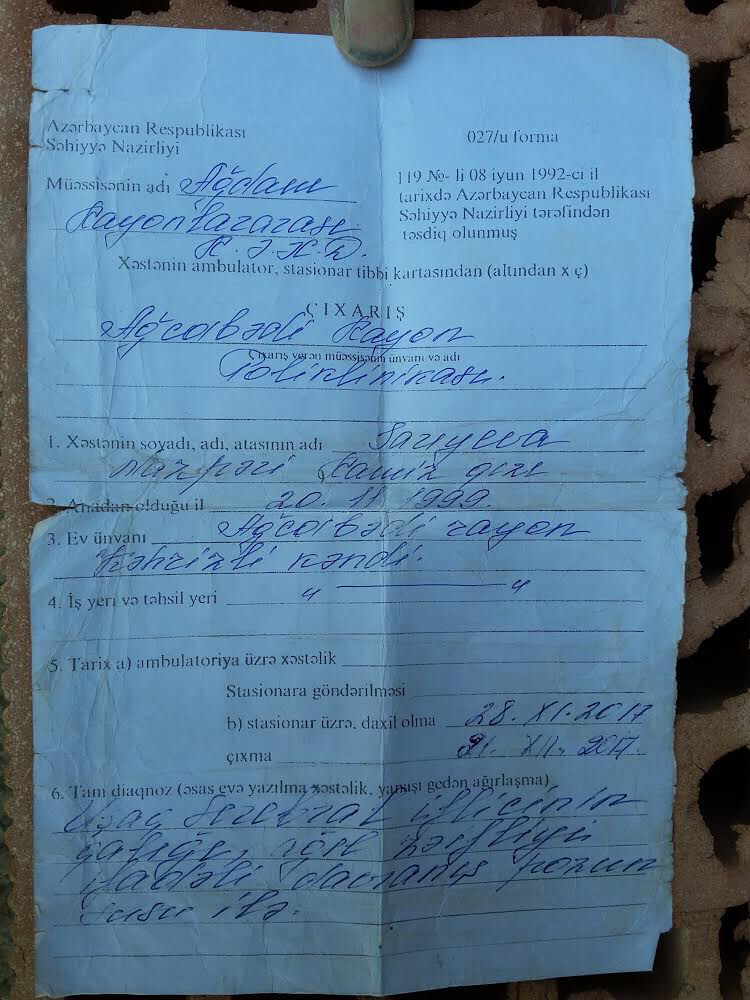 Azərbaycan Respublikası
Səhiyyə Nazirliyi
Müəssisənin adı Ağdam
Rayonlararası
R.Ə.X.D.
027/u forma
119 №- li 08 iyun 1992-ci il
tarixdə Azərbaycan Respublikası
Səhiyyə Nazirliyi tərəfindən
təsdiq olunmuş
Xəstənin ambulator, stasionar tibbi kartasından (altından x ç)
ÇIXARIŞ
Ağcabədi Rayon
Çıxarış verən müəssisənin ünvanı və adı
Poliklinikası.
1. Xəstənin soyadı, adı, atasının adı Sarıyeva
Nazpəri Ramiz qızı
2. Anadan olduğu il 20. 11 1999.
3. Ev ünvanı Ağcabədi rayon
Kəhrizli kəndi.
4. İş yeri və təhsil yeri " — "
5. Tarix a) ambulatoriya üzrə xəstəlik
Stasionara göndərilməsi
b) stasionar üzrə, daxil olma 28. XI. 2017
çıxma 21. XII. 2017.
6. Tam diaqnoz (əsas evə yazılma xəstəlik, yanaşı gedən ağırlaşma)
Uşaq Serebral iflicinin
qalığı, əqli zəifliyi
ifadəli davranış pozun
tusu ilə.